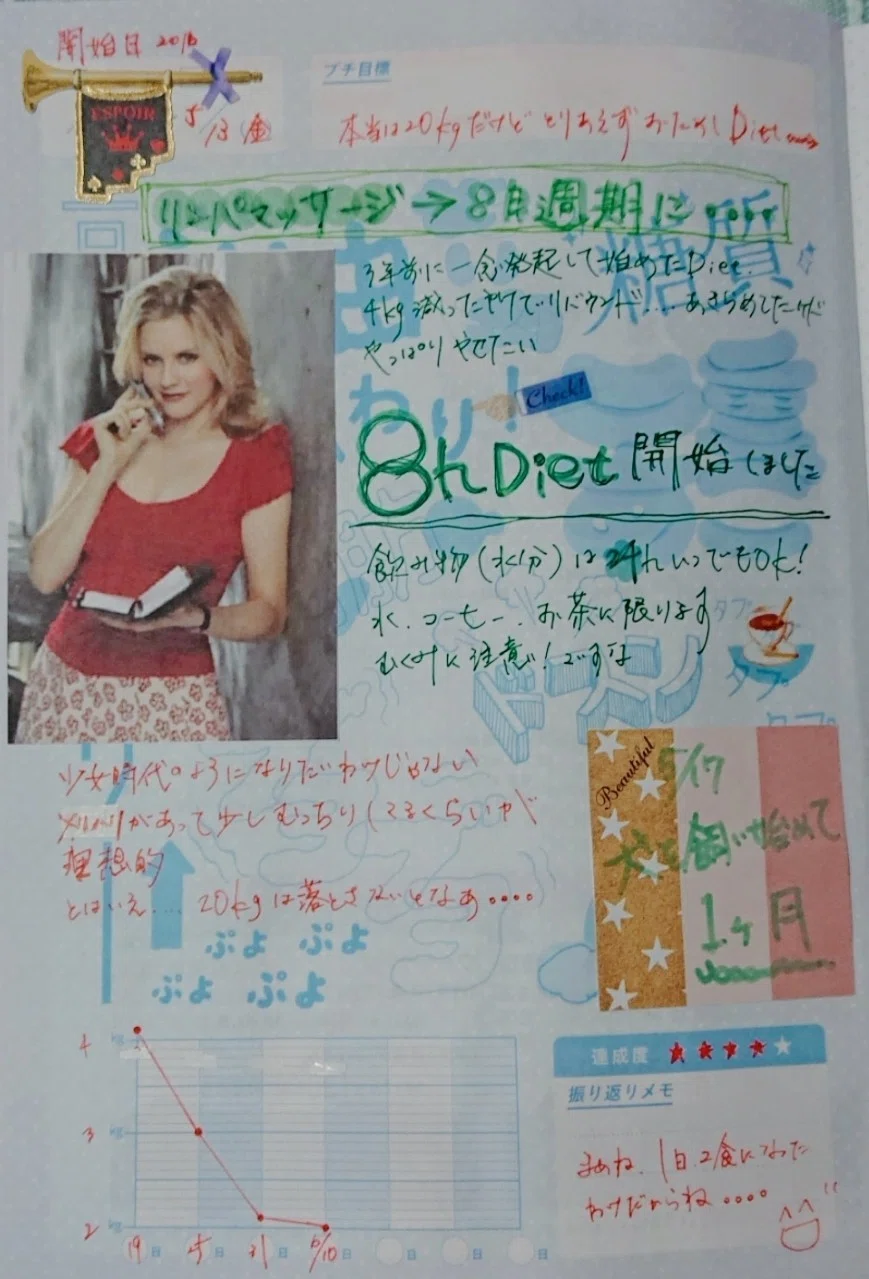 開始日 2016
プチ目標
ESPOIR
5/13 (金)
本当は20kgだけど とりあえず おためし Diet
リンパマッサージ→8日週期に....
糖質
3年前に一念発起して始めたDiet.
4kg減っただけでリバウンド.... あきらめてたけど
やっぱり やせたい
わり!
Check!
8h Diet 開始しました
飲み物(水分)は24hいつでもOK!
水.コーヒー.お茶に限ります
むくみに注意!ですな
タプ
タプ
タプ
ドーン
Beautiful
5/17
犬を飼い始めて
1ヶ月
少女時代のようになりたいわけじゃない
メリハリがあって少しむっちりしてるくらいが
理想的
とはいえ.... 20kgは落とさないとなあ....
ぷよ ぷよ
ぷよ ぷよ
4 kg
3 kg
2 kg
19日 31日 6/10日 日 日 日
達成度 ★★★★★
振り返りメモ
まぁね、1日、2食になった
わけだからね....